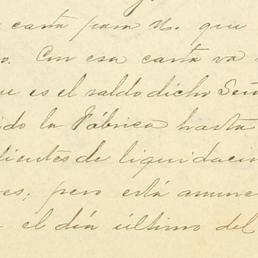 carta para N. que
Con esa carta va
que es el saldo dicho Señ
ido la Fábrica hasta
dientes de liquidacio
es; pero está anunc
el día último del